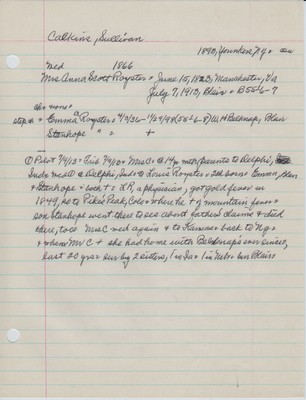 Calkins, Sullivan
1893, Yonkers, N.Y. =
med 1866
Mrs Anna Scott Royster = June 15, 1823, Manchester, Va
July 7, 1913, Blair = B55-6-7
ch = none =
step ch = Emma Royster = 4/3/36 - 1/29/98 (55-6-8) W H Belknap, Blair
Stanhope " = +
① Pilot 7/9/13 = Trib 7/9/13 = Mrs C = @ 14 yr met/parents to Delphi,
Ind = med ① @ Delphi, Ind = @ Louis Royster = 2 ch born = Emma, Blair
= Stanhope = both + = LR a physician, got gold fever in
1849, go to Pike's Peak, Colo = where he + of mountain fever =
son Stanhope went there to see about fathers claims & died
there, too = Mrs C med again & to Kansas = back to Ny =
= where Mr C + she had home with Belknap's ever since,
last 20 yrs = sur by 2 sisters, 1 in Ia = 1 in Nebr = bur Blair